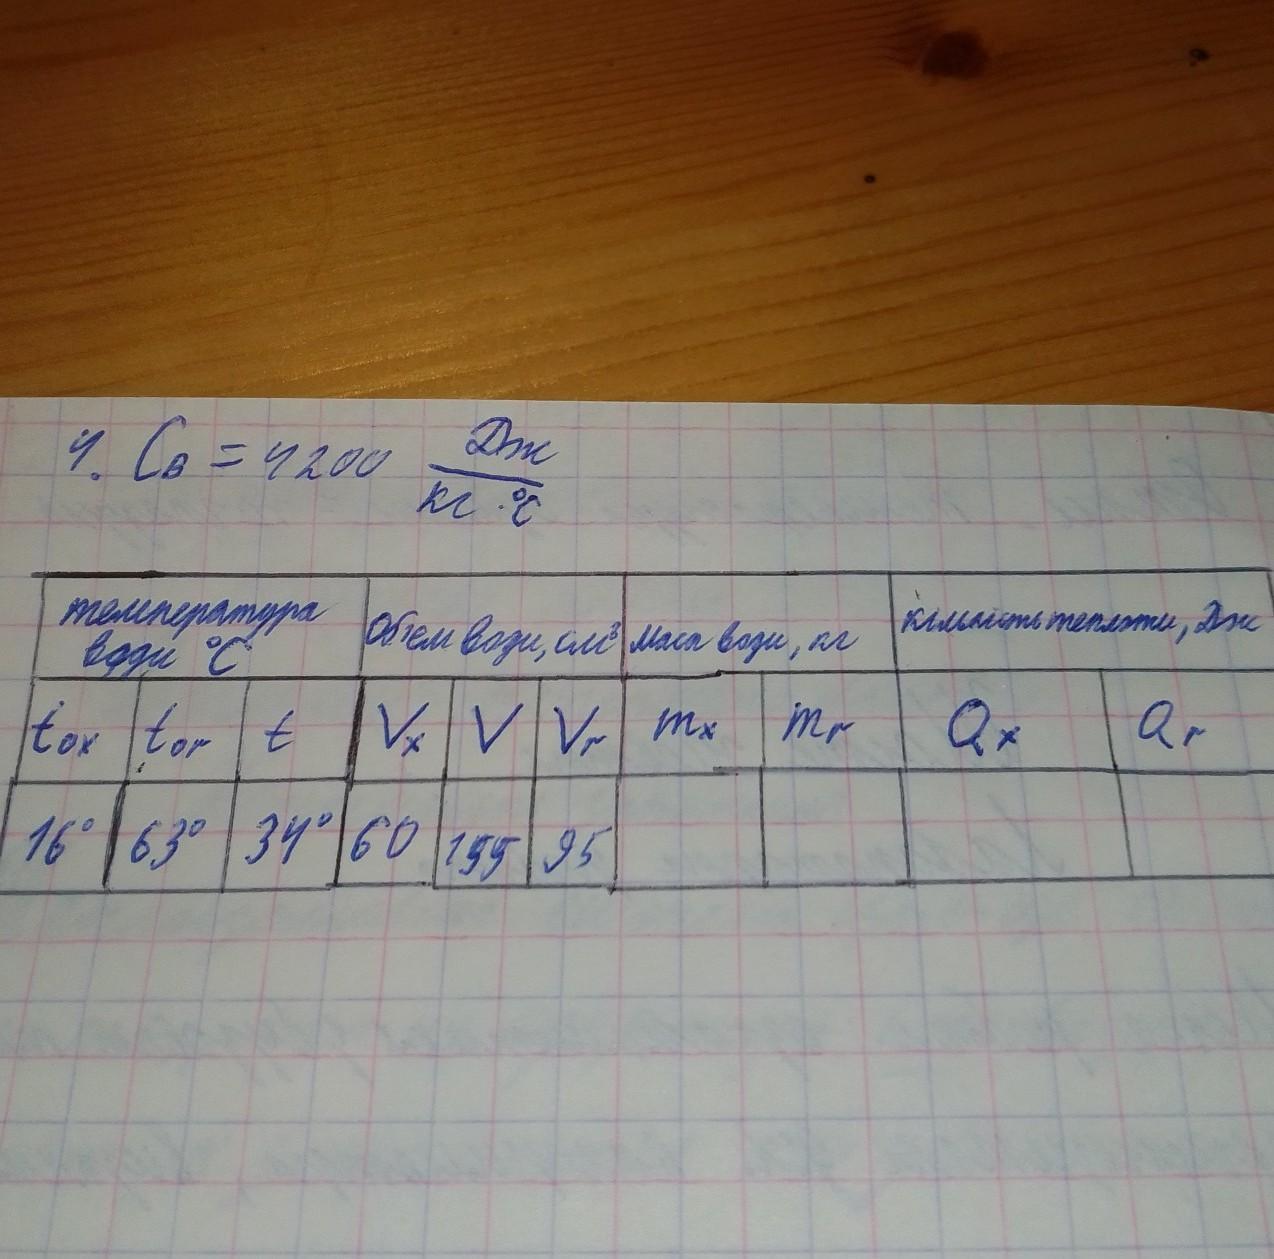 4. Cв = 4200 Дж
кг · °C
температура води °C | Объем води, см³ | маса води, кг | кількість теплоти, Дж
tох | tог | t | Vх | V | Vг | mх | mг | Qх | Qг
16° | 63° | 34° | 60 | 155 | 95